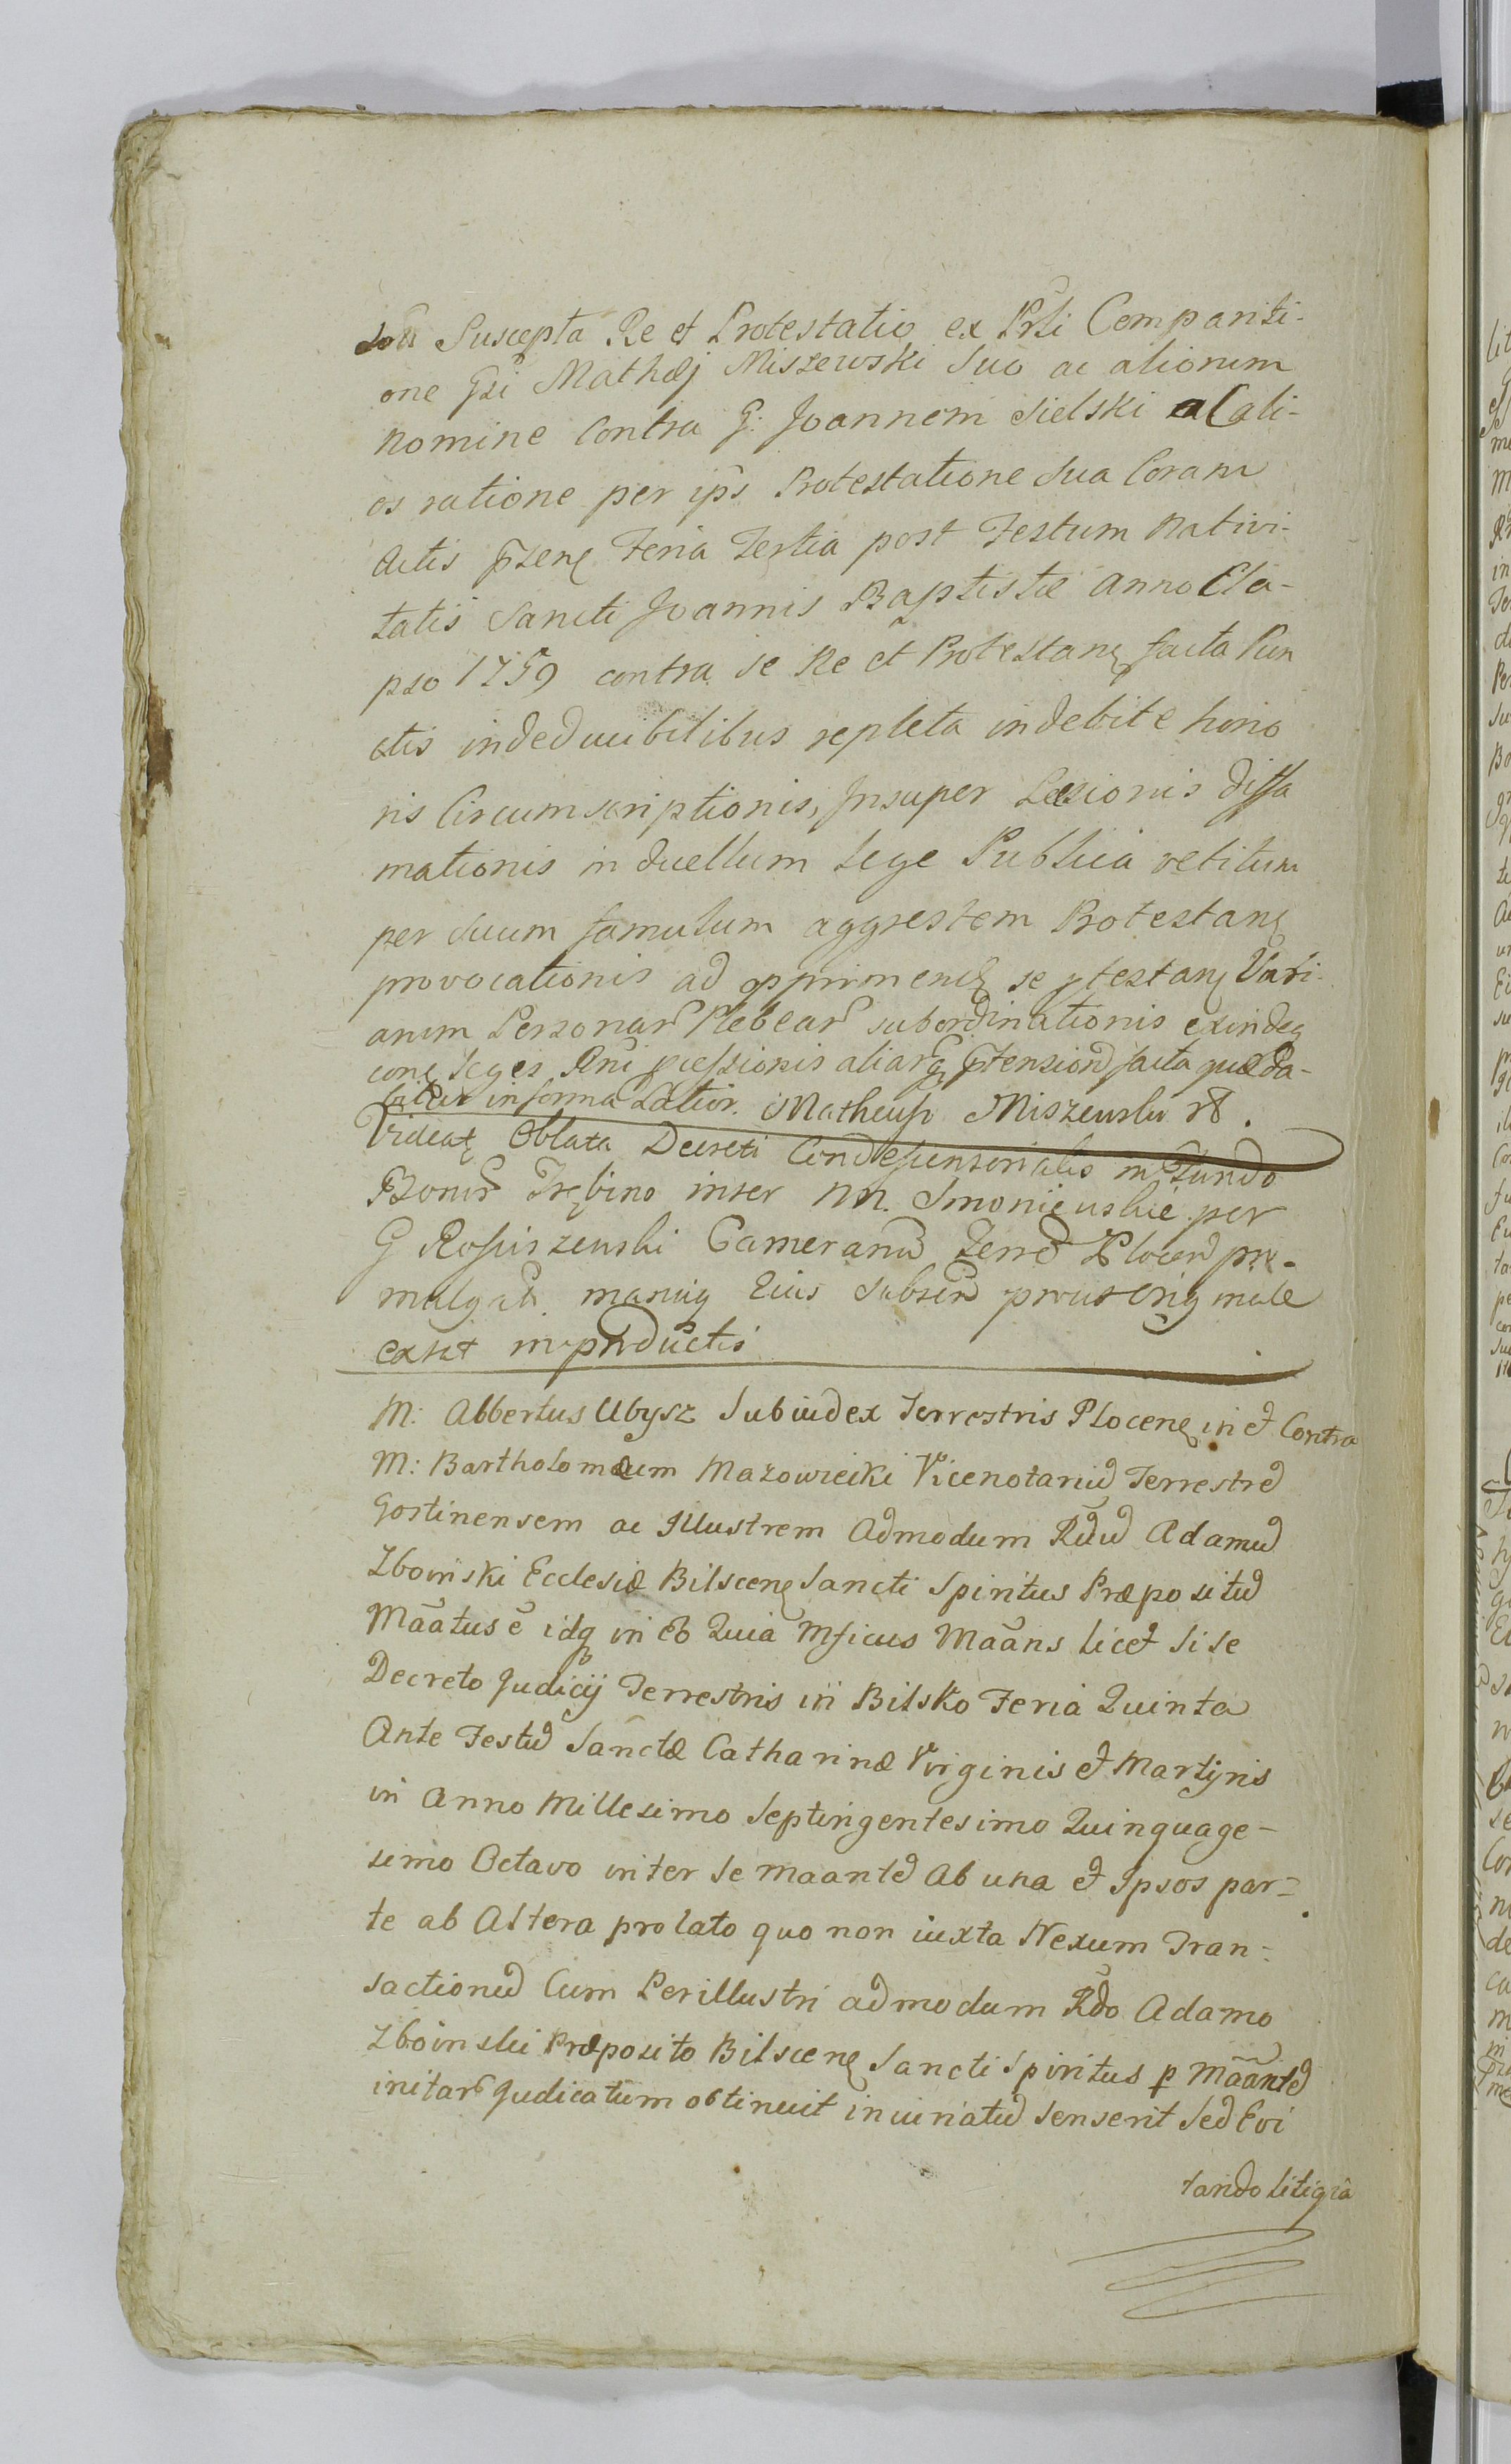 Suscepta Re et Protestatio ex Prsti Compariti-
one Gsi Mathæj Miszewski suo ac aliorum
nomine Contra G: Joannem Sielski
os ratione per ips Protestatione sua Coram
Actis Feria Tertia post Festum Nativi-
tatis Sancti Joannis Baptistæ Anno Ela-
pso 1759 contra se Re et Protestanę facta Pun
ctis indeducibilibus repleta indebite hono
ris Circumscriptionis, Insuper Læsionis diffa
mationis in duellum Lege Publica vetitum
per suum famulum aggrestem Protestanę
provocationis ad opprimenę se Vari-
arum Personar Plebear subordinationis exindeq
Leges aliarq facta quæ Da-
bitur in forma Latior. Matheusz Miszewski
Videatę Oblata Decreti Condescensorialis in Fundo
Bonor Trębino inter NN. Smoniewskie per
G Rościszewski Camerariū Terrē Plocen pro-
mulgati manuq Eius Subscr prout Originale
extat in productis
M: Albertus Ubysz Subiudex Terrestris Plocenę in et Contra
M: Bartholomæum Mazowiecki Vicenotariū Terrestrē
Gostinensem ac Illustrem Admodum Rdū Adamū
Zboinski Ecclesiæ Bilscenę Sancti Spiritus Præpositū
Māatus ē idq in eo Quia Mficus Māans licet si se
Decreto Judicij Terrestris in Bilsko Feria Quinta
Ante Festū Sanctæ Catharinæ Virginis et Martyris
in Anno Millesimo Septingentesimo Quinquage-
simo Octavo inter se maantē Ab una et Ipsos par=
te ab Altera prolato quo non iuxta Nexum Tran=
sactionū Cum Perillustri admodum Rdo Adamo
Zboinski Præposito Bilscenę Sancti Spiritus p Māantē
initar Judicatum obtinuit iniuriatū Senserit Sed Evi
tando litigia